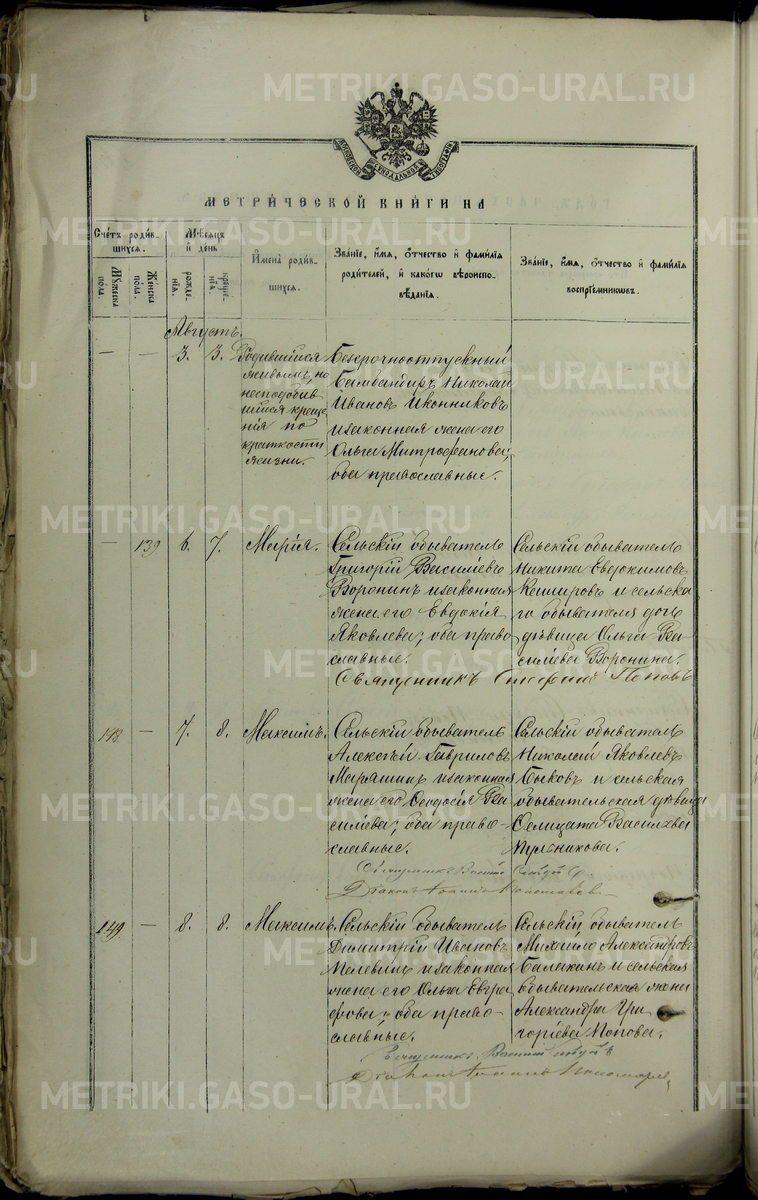 МЕТРИ́ЧЕСКОЙ КНИ́ГИ НА
Сче́тъ роди́в-
шихся.
Му́жеска
по́ла.
Же́нска
по́ла.
Мѣ́сяцъ
и҆ де́нь
рожде́-
нїѧ.
креще́-
нїѧ.
И҆мена̀ роди́в-
шихся.
Зва́нїе, и҆́мѧ, ѻ҆́тчество и҆ фами́лїѧ
роди́телей, и҆ како́гѡ вѣроиспо-
вѣ́данїѧ.
Зва́нїе, и҆́мѧ, ѻ҆́тчество и҆ фами́лїѧ
воспрїе́мникѡвъ.
Августъ.
— — 3. 3.
Родившійся
живымъ, но
несподобив
шійся креще
нія по
краткости
жизни.
Безсрочноотпускный
Бамбандиръ Николай
Ивановъ Иконниковъ
изаконная жена его
Ольга Митрофанова;
оба православные.
— 139 6. 7. Марія.
Сельскій обыватель
Григорій Василіевъ
Воронин изаконная
жена его Евдокія
Яковлева; оба право
славные.
Сельскій обыватель
Никита Евдокимовъ
Кашировъ и сельска
го обывателя дочь
дѣвица Ольга Ва
силіева Воронина.
Священникъ Попов
— 7. 8. Максимъ.
Сельскій обыватель
Алексѣй Гавриловъ
изаконная
жена его Ѳеодосія Ва
силіева; оба право-
славные.
Сельскій обыватель
Николай Яковлевъ
Быковъ и сельская
обывательская дѣвица
Фелицата
149 — 8. 8. Максимъ.
Сельскій обыватель
Димитрій Ивановъ
Пелевинъ изаконная
жена его Ольга Евгра
фова; оба право-
славные.
Сельскій обыватель
Михайло Александровъ
Балакинъ и сельская
обывательская жена
Александра Гри
горіева Попова.
METRIKI.GASO-URAL.RU